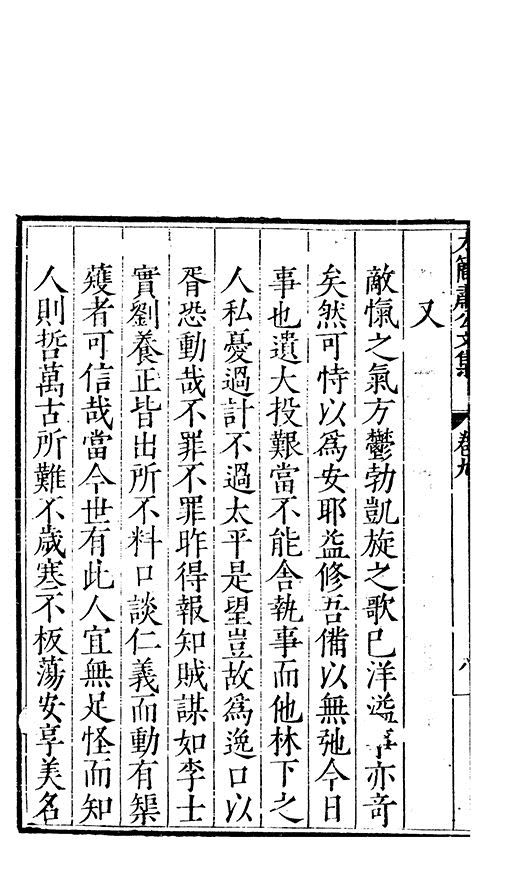 簡肅公文集
卷九
八
又
敵愾之氣方鬱勃凱旋之歌已洋溢亦竒
矣然可恃以爲安耶益修吾備以無弛今日
事也遺大投艱當不能舍執事而他林下之
人私憂過計不過太平是望豈故爲逸口以
胥恐動哉不罪不罪昨得報知賊謀如李士
實劉養正皆出所不料口談仁義而動有榘
矱者可信哉當今世有此人宜無足怪而知
人則哲萬古所難不歲寒不板蕩安享美名